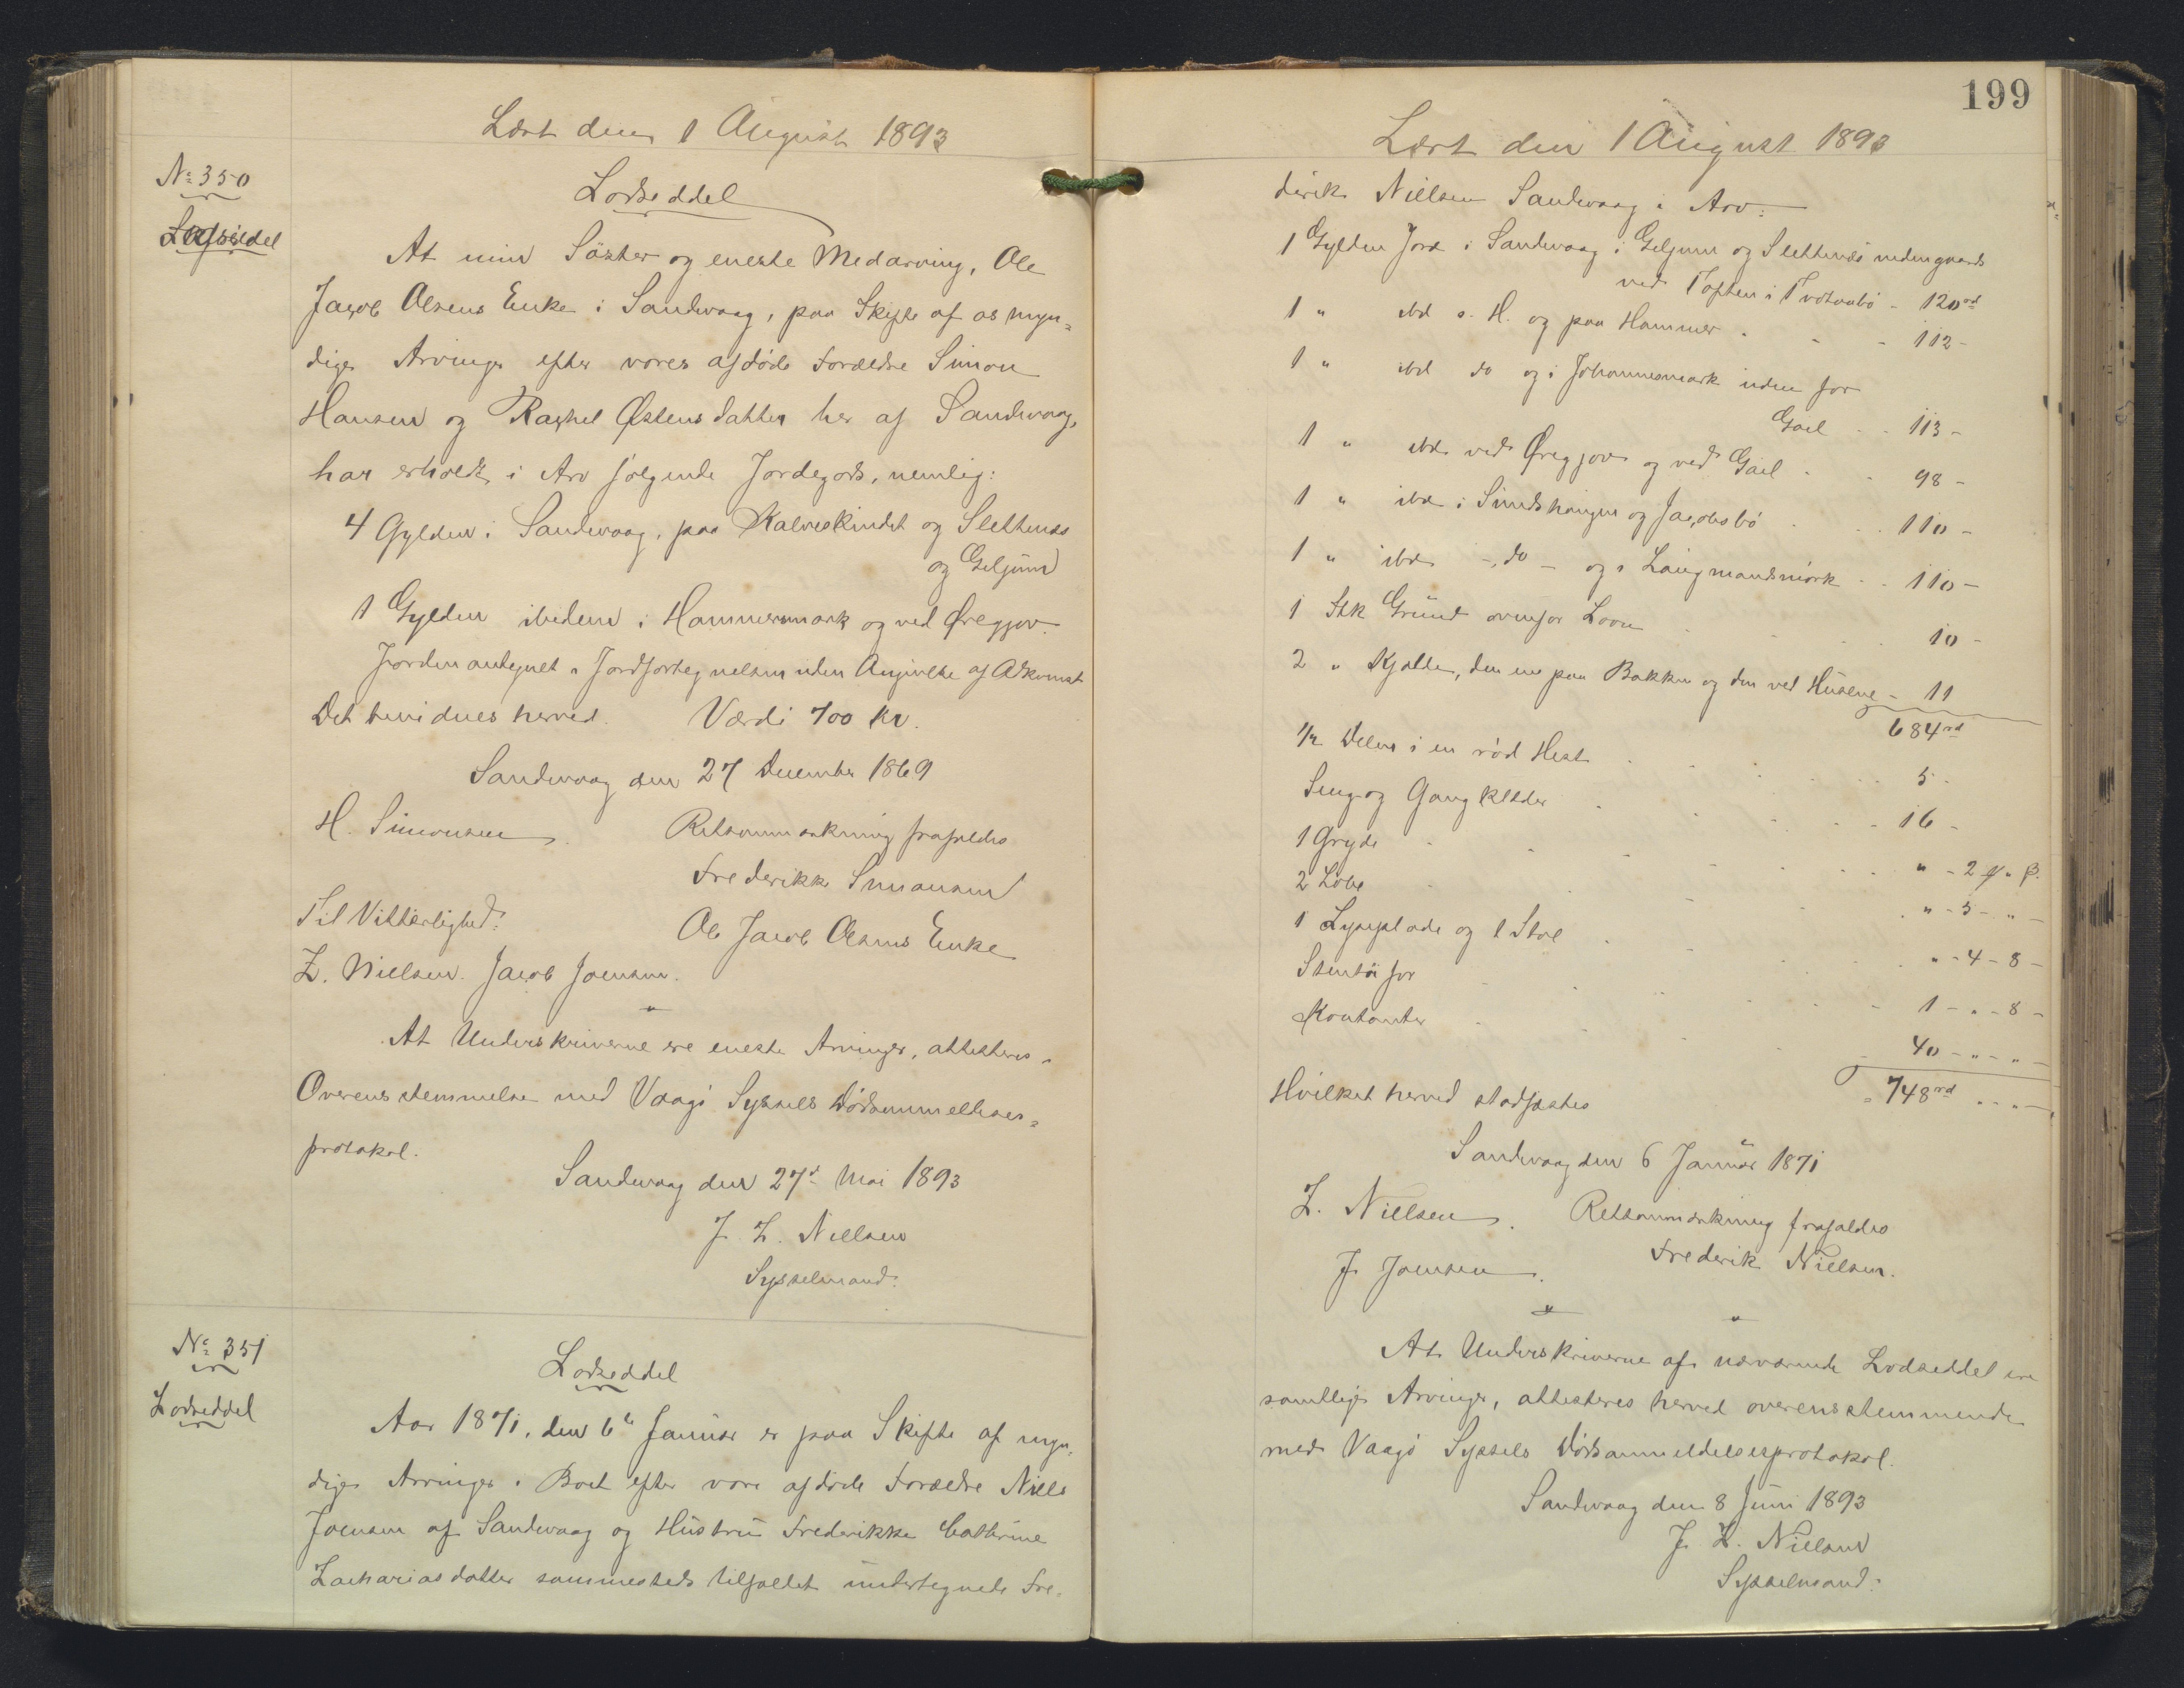 Læst den 1 August 1893
No 350
Lodseddel
Lodseddel
At min Söster og eneste Medarving, Ole
Jacob Olsens Enke i Sandevaag, paa Skifte af os myn=
dige Arvinge efter vores afdøde Forældre Simon
Hansen og Rachel Østensdatter her af Sandevaag,
har erholdt i Arv følgende Jordegods, nemlig:
4 Gylden i Sandevaag, paa Kalveskindet og Slettenæs
og Geljum
1 Gylden ibidem i Hammermark og ved Øregjov.
Jorden antegnet i Jordfortegnelsen uden Angivelse af Adkomst
Det bevidnes herved. Værdi 700 Kr.
Sandevaag den 27 December 1869
H. Simonsen. Retsanmærkning frafaldes
Frederikke Simonsen
Til Vitterlighed: Ole Jacob Olsens Enke
Z. Nielsen. Jacob Joensen.
"
At Underskriverne ere eneste Arvinger, attesteres i
Overensstemmelse med Vaagø Syssels Dødsanmeldelses=
protokol.
Sandevaag den 27d Mai 1893
J. Z. Nielsen
Sysselmand.
No 351
Lodseddel
Lodseddel
Aar 1871, den 6te Januar er paa Skifte af myn=
dige Arvinger i Boet efter vore afdøde Forældre Niels
Joensen af Sandevaag og Hustru Frederikke Cathrine
Zachariasdatter sammesteds tilfaldet undertegnede Fre=
199
Læst den 1 August 1893
derik Nielsen Sandevaag i Arv:
1 Gylden Jord i Sandevaag i Geljum og Slettenæs nedengaards
ved Toften i Tvotvabö - 120rd
1 " ibd s. H. og paa Hammer - - - 112 -
1 " ibd do og i Johannesmark uden for
Gail - - 113 -
1 " ibd ved Øregjov og ved Gail - - 98 -
1 " ibd i Simdshaugen og Jacobsbö - - 110 -
1 " ibd -, do - og i Laugmandsmörk - - 110 -
1 Stk Grund ovenfor Loon - - - 10 -
2 " Kjalde, den ene paa Bakken og den ved Husene - 11
684rd
1/2 Delen i en rød Hest - - - - 5 -
Seng og Gangklæder - - - - 16 -
1 Gryde - - - - " - 2 ƒ " ß.
2 Løbe - - - - " - 5 - " -
1 Lyseplade og 1 Stol - - - " - 4 - 8 -
Stentöi for - - - - 1 - " - 8 -
Kontanter - - - - 40 - " - " -
= 748rd " - " -
Hvilket herved stadfæstes
Sandevaag den 6 Januar 1871
Z. Nielsen. Retsanmærkning frafaldes
J. Joensen. Frederik Nielsen.
" "
At Underskriverne af nærværende Lodseddel ere
samtlige Arvinger, attesteres herved overensstemmende
med Vaagø Syssels Dødsanmeldelsesprotokol.
Sandevaag den 8 Juni 1893
J. Z. Nielsen
Sysselmand.